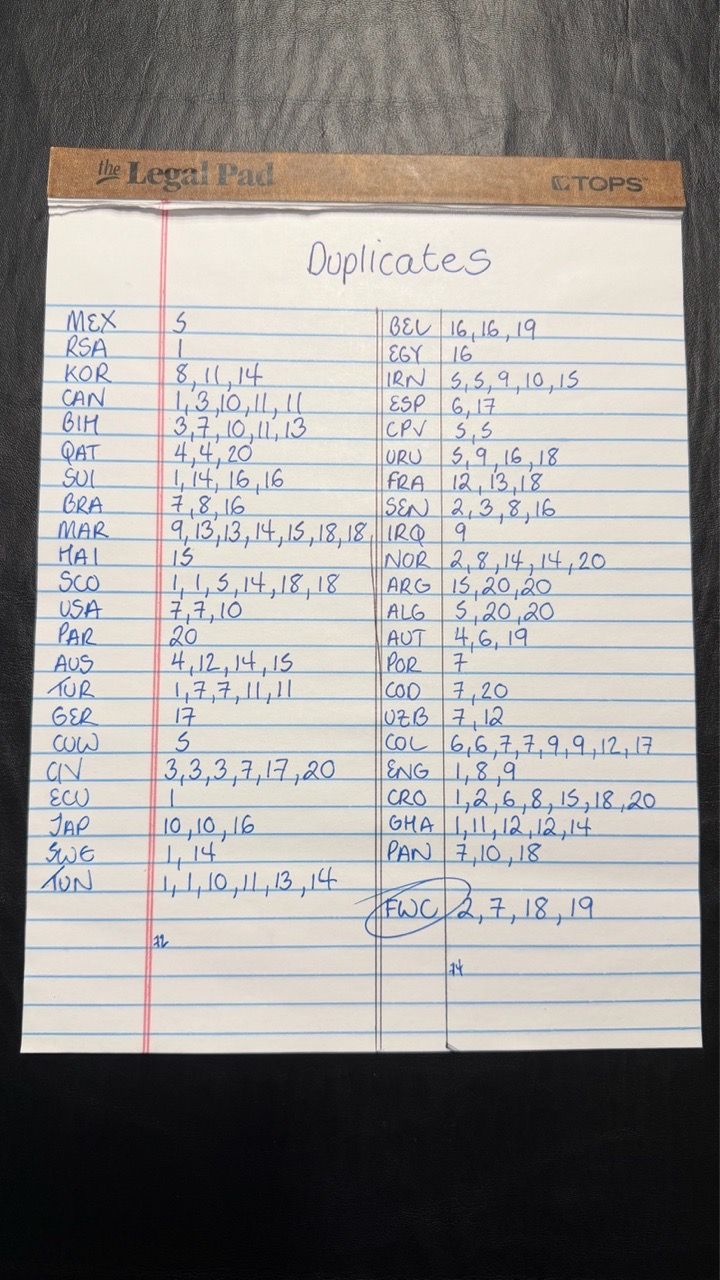 the Legal Pad
TOPS
Duplicates
MEX 5
RSA 1
KOR 8, 11, 14
CAN 1, 3, 10, 11, 11
BIH 3, 7, 10, 11, 13
QAT 4, 4, 20
SUI 1, 14, 16, 16
BRA 7, 8, 16
MAR 9, 13, 13, 14, 15, 18, 18
HAI 15
SCO 1, 1, 5, 14, 18, 18
USA 7, 7, 10
PAR 20
AUS 4, 12, 14, 15
TUR 1, 7, 7, 11, 11
GER 17
CUW 5
CIV 3, 3, 3, 7, 17, 20
ECU 1
JAP 10, 10, 16
SWE 1, 14
TUN 1, 1, 10, 11, 13, 14
72
BEL 16, 16, 19
EGY 16
IRN 5, 5, 9, 10, 15
ESP 6, 17
CPV 5, 5
URU 5, 9, 16, 18
FRA 12, 13, 18
SEN 2, 3, 8, 16
IRQ 9
NOR 2, 8, 14, 14, 20
ARG 15, 20, 20
ALG 5, 20, 20
AUT 4, 6, 19
POR 7
COD 7, 20
UZB 7, 12
COL 6, 6, 7, 7, 9, 9, 12, 17
ENG 1, 8, 9
CRO 1, 2, 6, 8, 15, 18, 20
GHA 1, 11, 12, 12, 14
PAN 7, 10, 18
FWC 2, 7, 18, 19
74